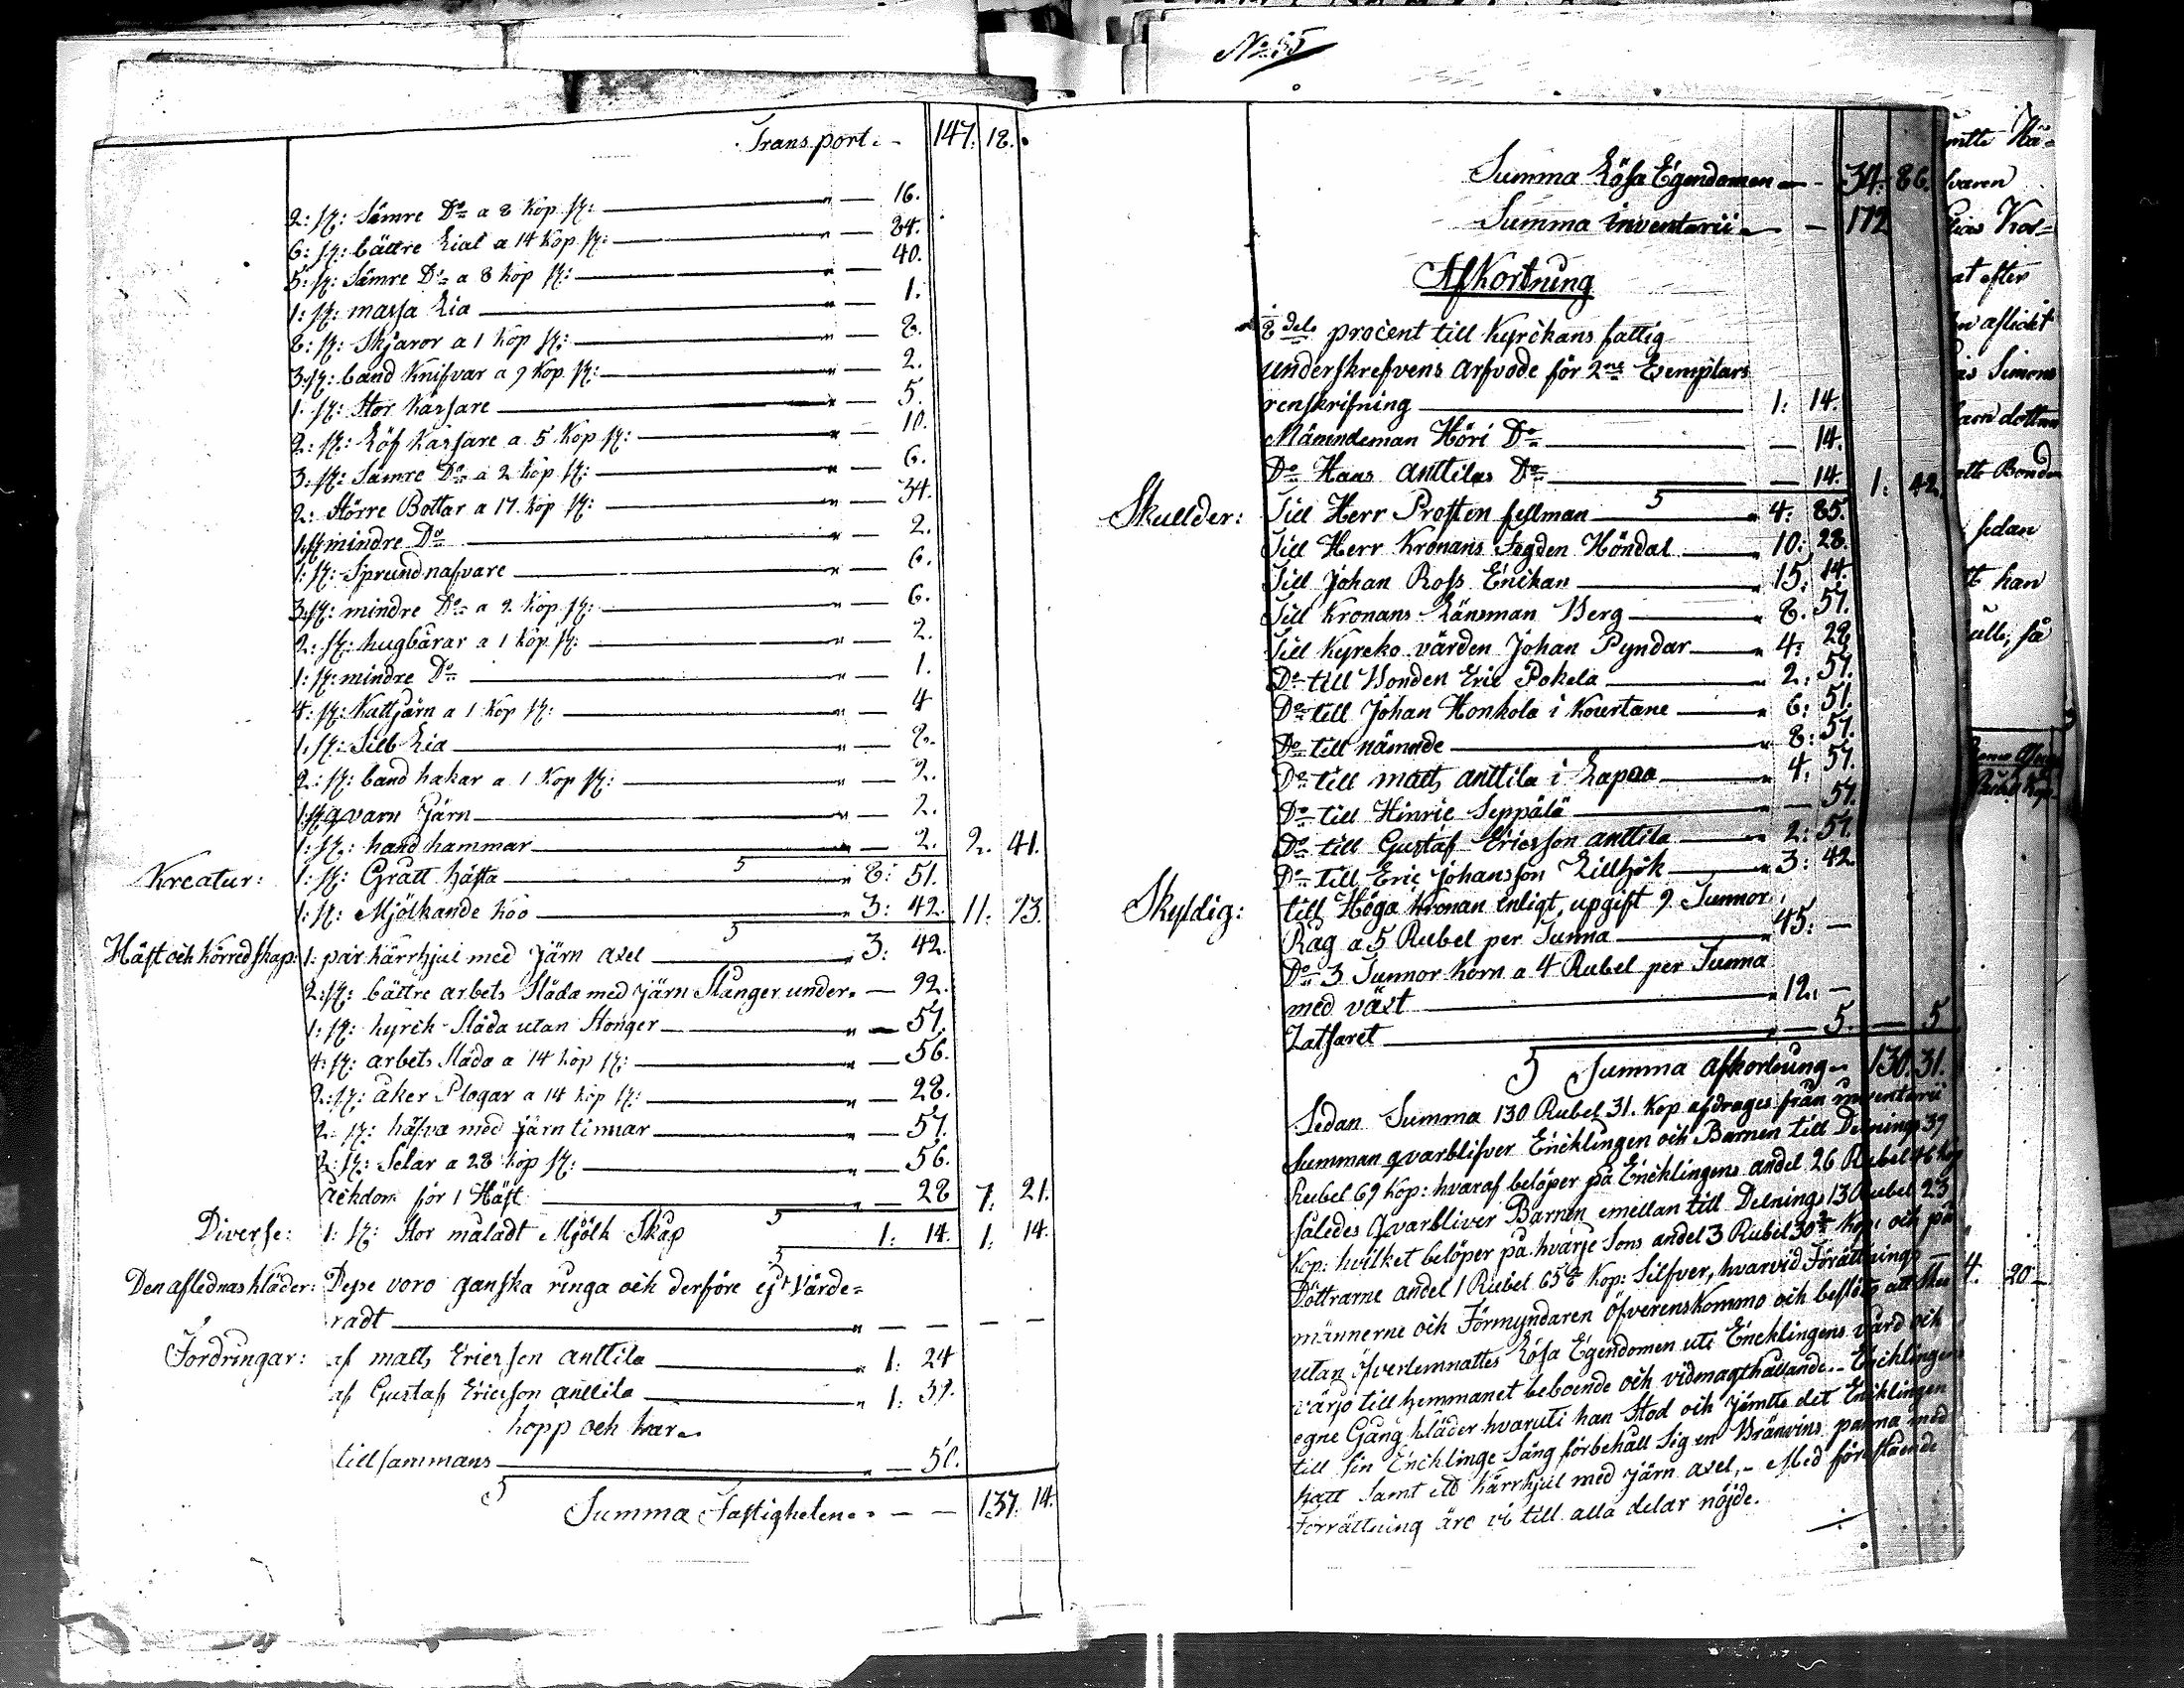 Transport.- 147. 18.
2: st: Sämre Do a 8 Kop st: " — 16.
6: st: bättre Liar a 14 Kop st: " — 84.
5: st: Sämre Do a 8 Kop st: " — 40.
1: st: massa Lia " — 1.
8: st: Skjäror a 1 Kop st: " — 8.
3: st: band Knifvar a 9 Kop st: " — 2.
1: st: Stor Kassare " — 5.
2: st: Löf Kassare a 5 Kop st: " — 10.
3: st: Sämre Do a 2 Kop st: " — 6.
2: Större Bottar a 17 Kop st: " — 34.
1: st mindre Do " — 2.
1: st: Sprundnafvare " — 6.
3: st: mindre Do a 2 Kop st: " — 6.
2: st: hugbärar a 1 Kop st: " — 2.
1: st: mindre Do " — 1.
4: st: Kuttjärn a 1 Kop st: " — 4
1: st: Lia " — 2.
2: st: band hakar a 1 Kop st: " — 2.
1: st qvarn Järn " — 2.
1: st: hand hammar " — 2. 2. 41.
Kreatur: 1: st: Grått hästa " 8: 51.
1: st: Mjölkande koo " 3: 42. 11: 93.
Häst och Körredskap: 1: par kärrhjul med Järn axel " 3: 42.
2: st: bättre arbets Släda med Järn Slanger under " — 92.
1: st: kyrck Släda utan Stonger " — 57.
4: st: arbets Släda a 14 Kop st: " — 56.
2: st: åker Plogar a 14 Kop st: " — 28.
2: st: häfva med järn tinnar " — 57.
2: st: Selar a 28 Kop st: " — 56.
åckdon för 1 Häst " — 28 7. 21.
Diverse: 1: st: Stor maladt Mjölk Skåp 1: 14. 1: 14.
Den aflednas kläder: Desse voro ganska ringa och derföre ej Värde=
radt " — — — —
Fordringar: af matts Ericsson anttila " 1: 24
af Gustaf Ericsson anttila " 1: 39.
hopp och har
tillsammans " — 50.
Summa Fastigheten — — 137. 14.
No 35
Summa Lösa Egendomen — 34. 86.
Summa inventarii — 172
Afkortning
1/8 dels procent till Kyrckans fattig
underskrefvens arfvode för 2ne Exemplars
renskrifning 1: 14.
Nämndeman Höri Do — 14.
Do Haas anttilas Do — 14. 1: 42.
Skullder: Till Herr Prosten fellman " 4: 85.
Till Herr Kronans Fogden Höndal " 10: 28.
Till Johan Ross Enckan " 15: 14.
Till Kronans Länsman Berg " 8. 57.
Till Kyrcko värden Johan Pyndar " 4: 28
Do till Bonden Eric Pokela " 2: 57.
Do till Johan Honkola i Kourtane " 6: 51.
Do till nämnde " 8: 57.
Do till matts anttila i Lapoa " 4. 57.
Do till Hinric Seppälä — 57.
Do till Gustaf Ericsson anttila " 2: 57.
Do till Eric Johansson Lillhjök " 3: 42
Skyldig: till Höga Kronan enligt upgift 9 Tunnor
Råg a 5 Rubel per Tunna " 45: —
Do 3 Tunnor Korn a 4 Rubel per Tunna
med växt " 12. —
" — 5. — 5
Summa afkortning 130. 31.
Sedan Summa 130 Rubel 31. Kop afdrages från inventarii
Summan qvarblifver Encklingen och Barnen till Delnings 39
Rubel 69 Kop: hvaraf belöper på Encklingens andel 26 Rubel 46 Kop
således Qvarbliver Barnen emellan till Delnings 13 Rubel 23
Kop: hvilket belöper på hvarje Sons andel 3 Rubel 30 Kop: och på
Döttrarne andel 1 Rubel 65 Kop: Silfver, hvarvid Förättnings
männerne och Förmyndaren öfverenskommo och beslöto att Skee
utan öfverlemnattes Lösa Egendomen uti Encklingens vård och
värjo till hemmanet beboende och vidmagthållande.- Encklingens
egne Gång kläder hvaruti han Stod och jämte det Encklingen
till Sin Encklinge Säng förbehåll Sig en Bränvins panna med
hatt Samt ett kärrhjul med Järn axel,- Med föreståënde
Förrättning äro vi till alla delar nöjde.
4. 20
at efter
sedan
han